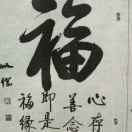 福
心存
善念
即是
福缘